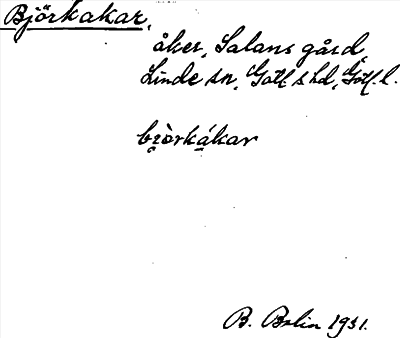 Björkakar,
åker, Salans gård
Linde sn, Gotl. s hd, Gotl. l.
biòrkákar
B. Bolin 1931.